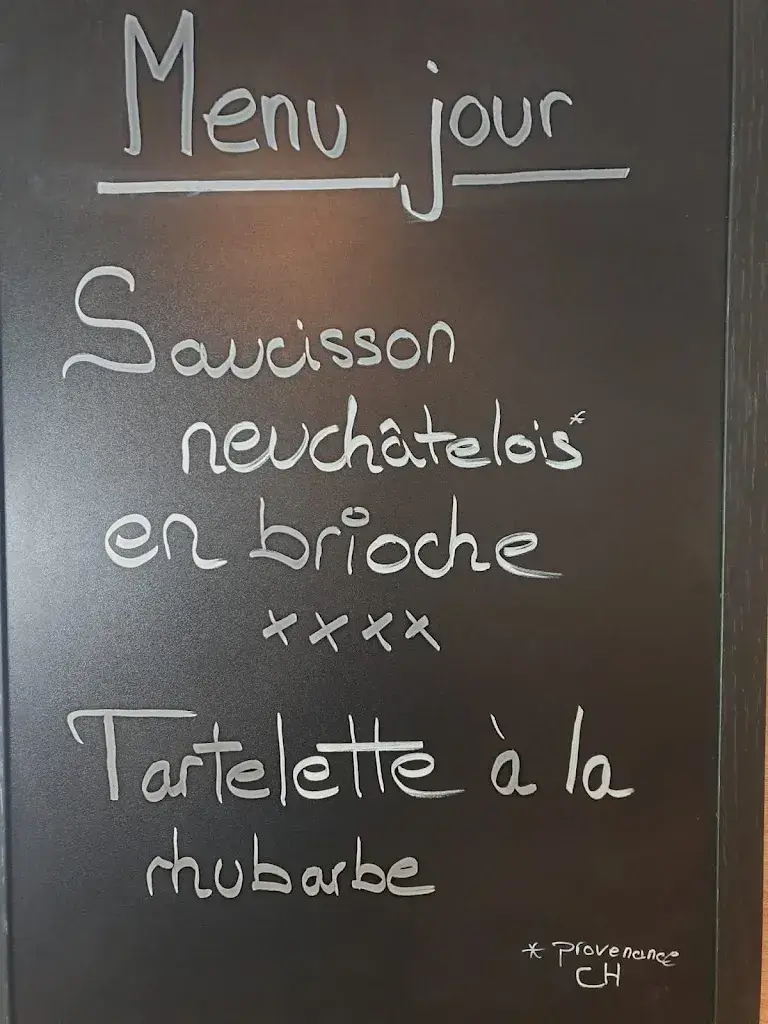 Menu jour
Saucisson
neuchâtelois*
en brioche
xxxx
Tartelette à la
rhubarbe
* provenance
CH